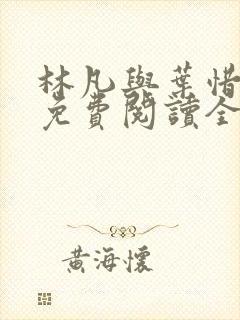 林凡與葉惜
免費閱讀全
黃海懷